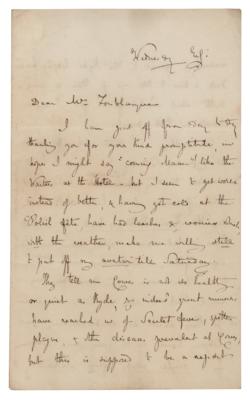 Wednesday
Dear Mr. Fonblanque
I have put off from day to day
thanking you for your kind promptitude, in
hope I might say "coming Ma'am" like the
Waiter at the Hotel - but I seem to get worse
instead of better, & having got cold at the
Polish fete, have had leeches &
with the weather, make me willy nilly
to put off my till Saturday.
They tell me Cowes is not so healthy
or quiet as Ryde, & indeed great rumours
have reached us of Scarlet fever,
plague, & other diseases prevalent at Cowes,
but this is supposed to be a